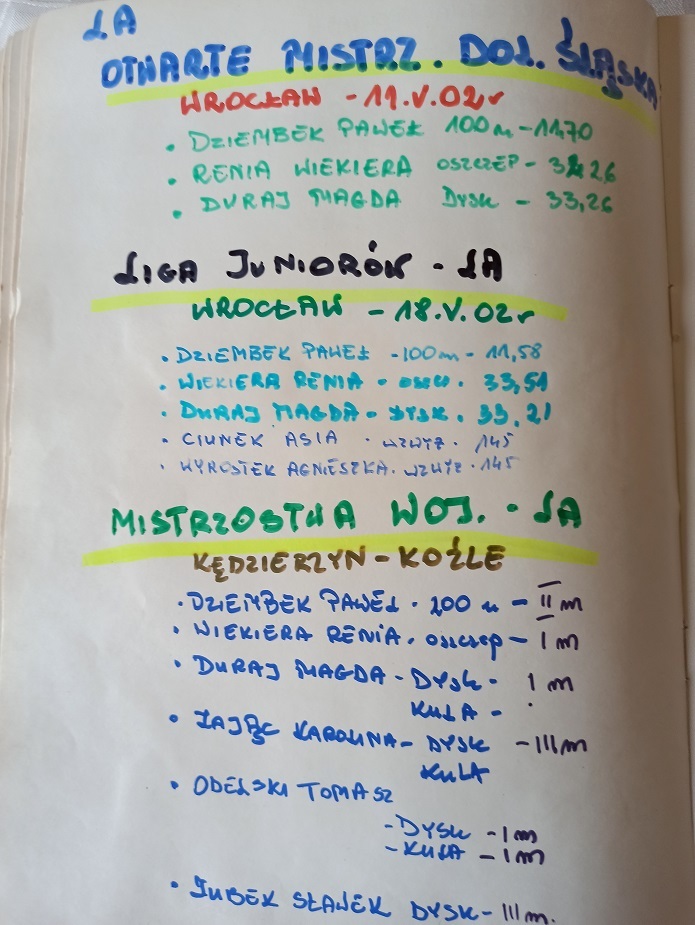 ŁA
OTWARTE MISTRZ. DOL. ŚLĄSKA
WROCŁAW - 11.V.02r
• DZIEMBEK PAWEŁ 100m - 11,70
• RENIA WIEKIERA OSZCZEP -
• DURAJ MAGDA DYSK - 33,26
LIGA JUNIORÓW - LA
WROCŁAW - 18.V.02r
• DZIEMBEK PAWEŁ - 100m - 11,58
• WIEKIERA RENIA - oszcz. 33,51
• DURAJ MAGDA - DYSK. 33,21
• CIUNEK ASIA • WZWYŻ • 145
• WYROSTEK AGNIESZKA. WZWYŻ • 145
MISTRZOSTWA WOJ. • LA
KĘDZIERZYN - KOŹLE
• DZIEMBEK PAWEŁ • 200 m - II m
• WIEKIERA RENIA. oszczep - I m
• DURAJ MAGDA - DYSK - I m
KULA -
• ZAJĄC KAROLINA - DYSK - III m
KULA
• ODELSKI TOMASZ
- DYSK - I m
- KULA - I m
• SŁAWEK DYSK - III m.